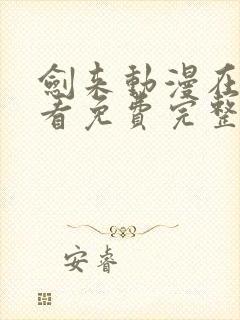 劍来動漫在
看免費完整
安睿